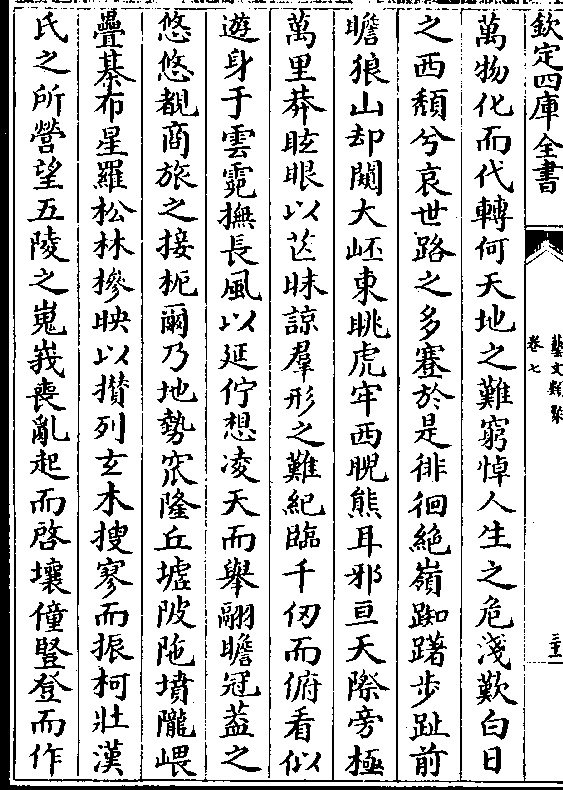 欽定四庫全書
藝文類聚
卷七
萬物化而代轉何天地之難窮悼人生之危淺歎白日
之西頹兮哀世路之多蹇於是徘徊絶嶺踟躇步趾前
瞻狼山却闚大岯東眺虎牢西睨熊耳邪亘天際旁極
萬里莽眩眼以芒昧諒羣形之難紀臨千仞而俯看似
遊身于雲霓撫長風以延佇想凌天而舉翮瞻冠葢之
悠悠覩商旅之接枙爾乃地勢窊隆丘墟陂陁墳隴㟪
疊棊布星羅松林摻映以攅列玄木搜寥而振柯壯漢
氏之所營望五陵之嵬峩喪亂起而啓壤僮豎登而作